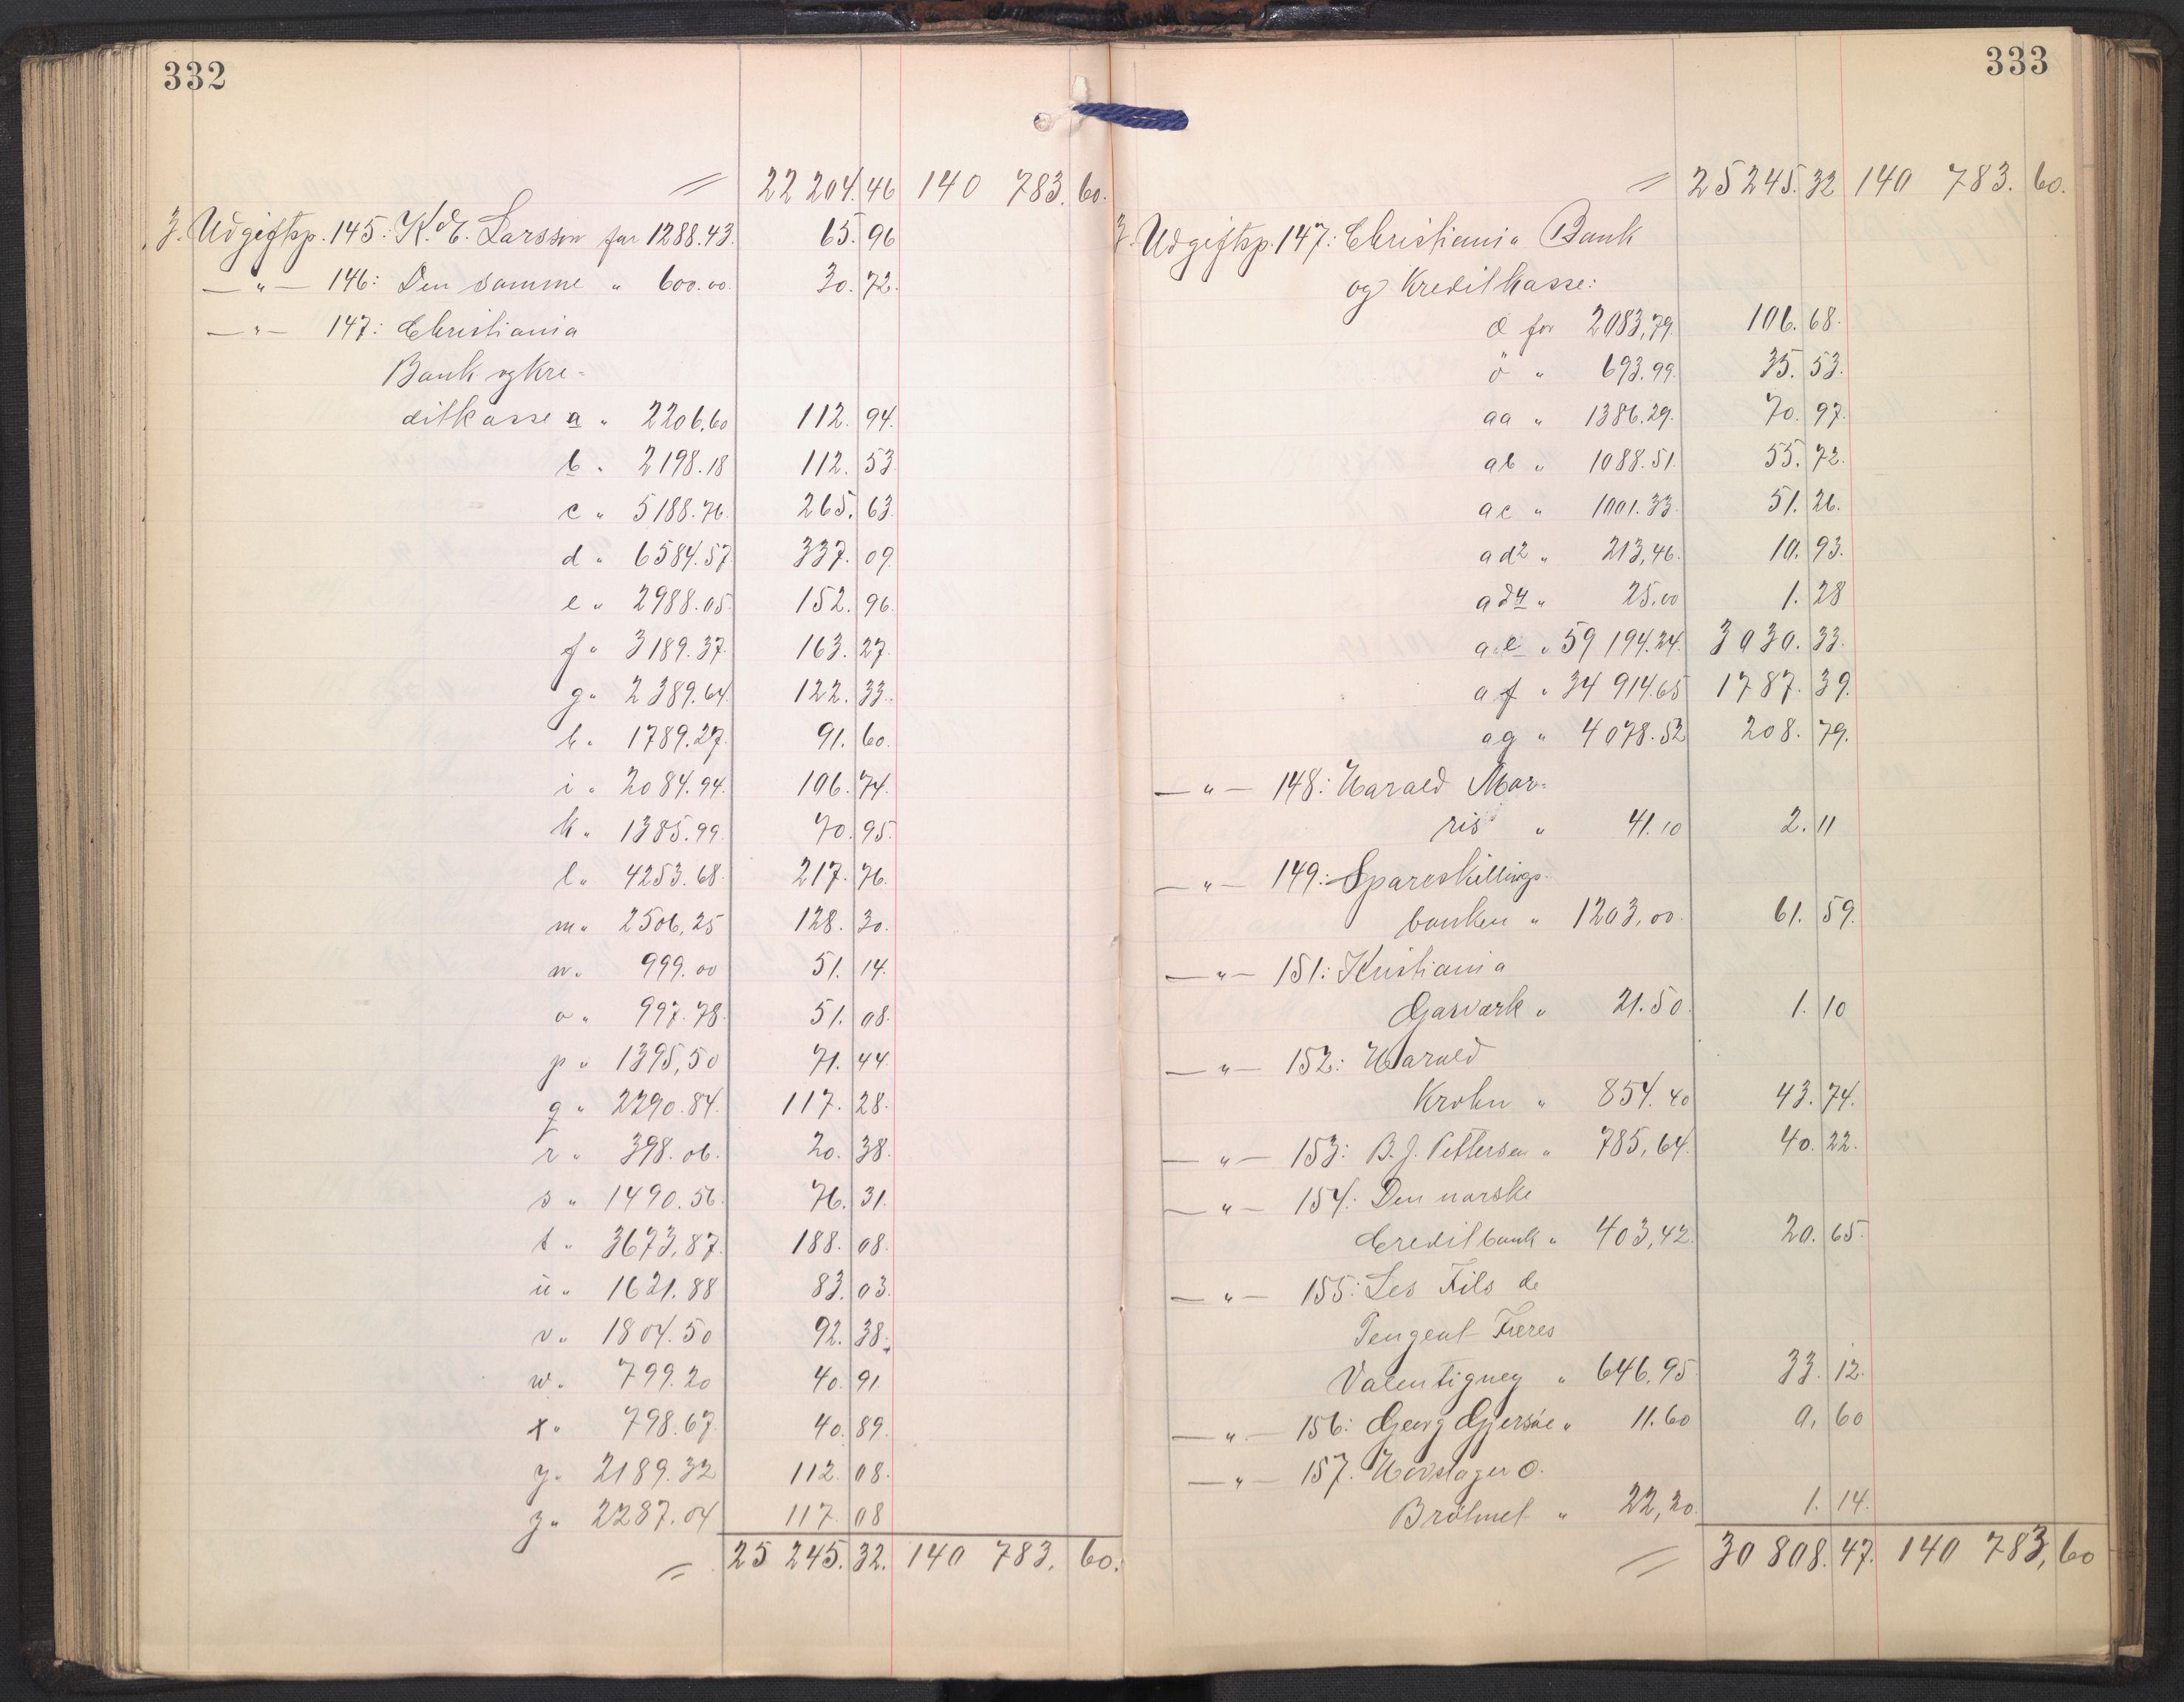 332
= 22 204. 46 140 783. 60.
3. Udgiftsp. 145: K. E. Larssen for 1288.43. 65. 96
—"— 146: Den samme " 600.00. 30. 72.
—"— 147: Christiania
Bank og Kre-
ditkasse a " 2206.60 112. 94.
b " 2198.18 112. 53
c " 5188.76. 265. 63.
d " 6584.57 337. 09.
e " 2988.05. 152. 96.
f " 3189.37. 163. 27.
g " 2389.64. 122. 33.
h " 1789.27. 91. 60.
i " 2084.94. 106. 74.
k " 1385.99. 70. 95.
l " 4253.68. 217. 76.
m " 2506,25 128. 30.
n " 999.00 51. 14.
o " 997.78. 51. 08.
p " 1395,50 71. 44.
q " 2290.84. 117. 28.
r " 398.06. 20. 38.
s " 1490.56. 76. 31.
t " 3673,87. 188. 08.
u " 1621.88 83. 03.
v " 1804.50 92. 38.
w " 799.20 40. 91.
x " 798.67. 40. 89.
y " 2189.32 112. 08.
z " 2287.04 117. 08
= 25 245. 32. 140 783. 60.
333
= 25245. 32 140 783. 60.
3. Udgiftsp. 147: Christiania Bank
og Kreditkasse:
æ for 2083,79. 106. 68.
ö " 693.99. 35. 53.
aa " 1386.29. 70. 97.
ab " 1088.51. 55. 72.
ac " 1001.33. 51. 26.
ad2 " 213,46. 10. 93.
ad4 " 25.00 1. 28
ae " 59 194.24. 3030. 33.
af " 34 914.65 1787. 39.
ag " 4078.52 208. 79.
—"— 148: Harald Mor-
ris " 41.10 2. 11
—"— 149: Spareskillings-
banken " 1203,00. 61. 59.
—"— 151: Kristiania
Gasværk " 21.50. 1. 10
—"— 152: Harald
Krohn " 854.40 43. 74.
—"— 153: B. J. Pettersen " 785,64. 40. 22.
—"— 154: Den norske
Creditbank " 403,42. 20. 65.
—"— 155: Les Fils de
Peugeot Freres
Valentigney " 646,95. 33. 12.
—"— 156: Georg Gjersøe " 11.60 0, 60
—"— 157. Hovslager O.
Bröhmel " 22,20. 1. 14.
= 30 808. 47. 140 783, 60